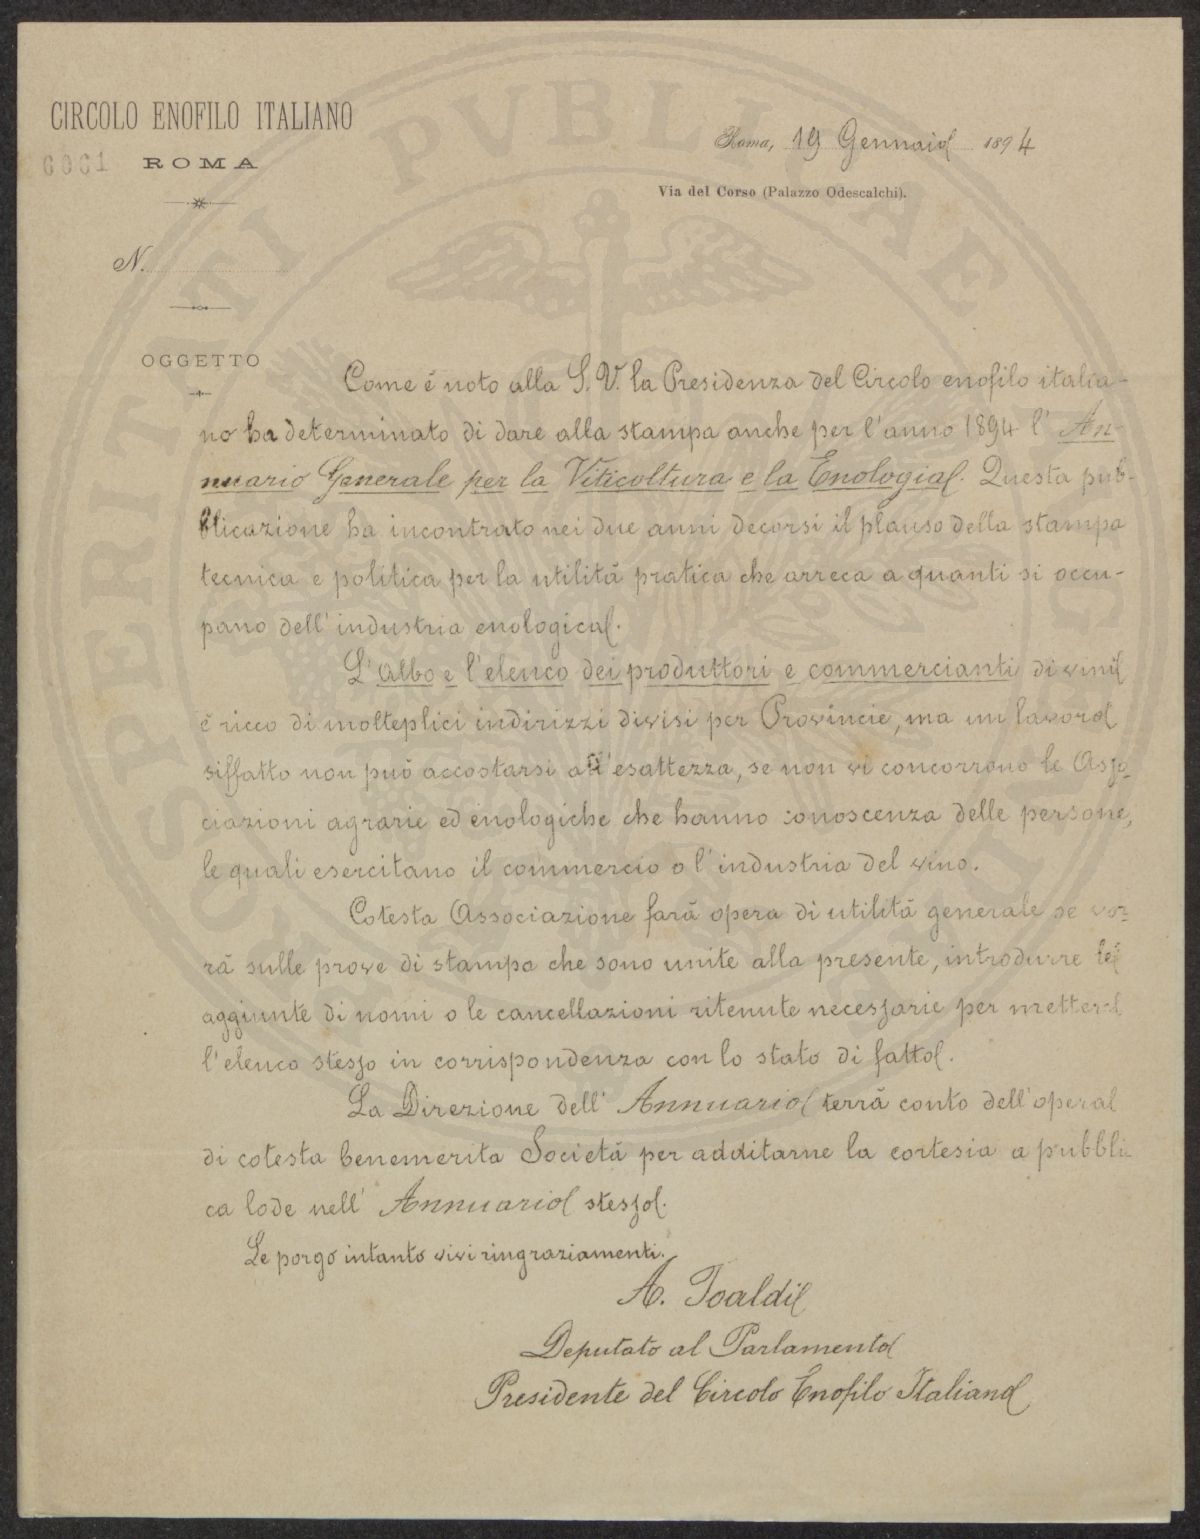 CIRCOLO ENOFILO ITALIANO
6061 ROMA
Roma, 19 Gennaio 1894
Via del Corso (Palazzo Odescalchi).
N.
OGGETTO
Come é noto alla S. V. la Presidenza del Circolo enofilo italia-
no ha determinato di dare alla stampa anche per l'anno 1894 l' An-
nuario Generale per la Viticoltura e la Enologia. Questa pub-
blicazione ha incontrato nei due anni decorsi il plauso della stampa
tecnica e politica per la utilitá pratica che arreca a quanti si occu-
pano dell'industria enologica.
L'Albo e l'elenco dei produttori e commercianti di vini
é ricco di molteplici indirizzi divisi per Provincie, ma un lavoro
siffatto non può accostarsi all'esattezza, se non vi concorrono le Asso-
ciazioni agrarie ed enologiche che hanno conoscenza delle persone,
le quali esercitano il commercio o l'industria del vino.
Cotesta Associazione fará opera di utilitá generale se vor-
rá sulle prove di stampa che sono unite alla presente, introdurre le
aggiunte di nomi o le cancellazioni ritenute necessarie per mettere
l'elenco stesso in corrispondenza con lo stato di fatto.
La Direzione dell' Annuario terrá conto dell'opera
di cotesta benemerita Societá per additarne la cortesia a pubbli-
ca lode nell' Annuario stesso.
Le porgo intanto vivi ringraziamenti.
A. Toaldi
Deputato al Parlamento
Presidente del Circolo Enofilo Italiano